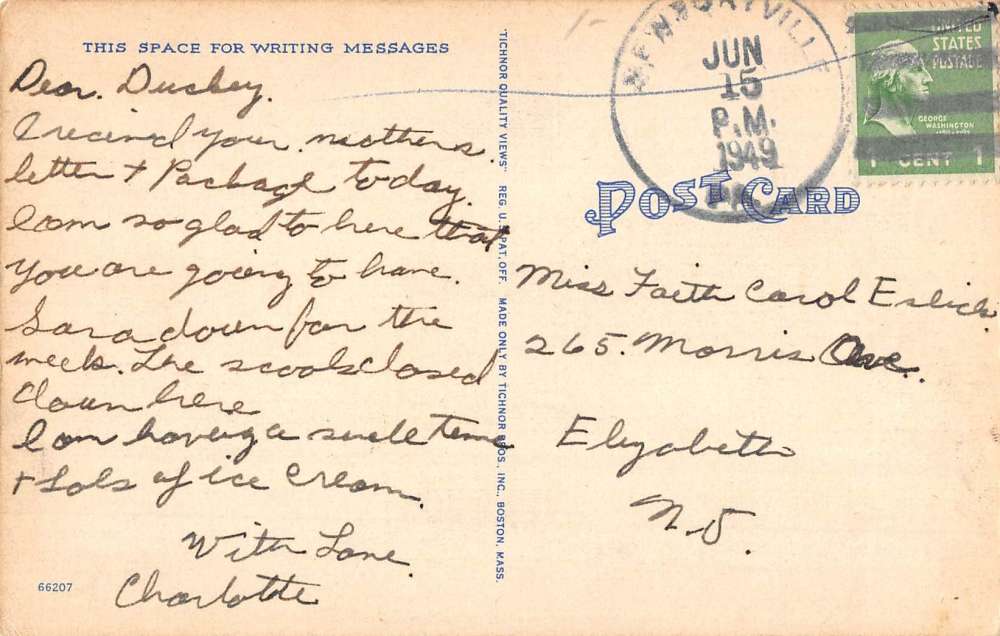 THIS SPACE FOR WRITING MESSAGES
Dear. Duckey.
I recived your mothers.
letter + Package today.
I am so glad to here that
you are going to have.
Sara down for the
week. The scools closed
down here
I am having a swell time
+ Lots of ice cream.
With Love.
Charlotte
66207
"TICHNOR QUALITY VIEWS" REG. U.S. PAT. OFF. MADE ONLY BY TICHNOR BROS., INC., BOSTON, MASS.
NEWPORTVILLE
JUN
15
P.M.
1949
PA.
UNITED
STATES
POSTAGE
GEORGE
WASHINGTON
1 CENT 1
POST CARD
Miss Faith Carol
265. Morris Ave.
Elizabeth
N.J.